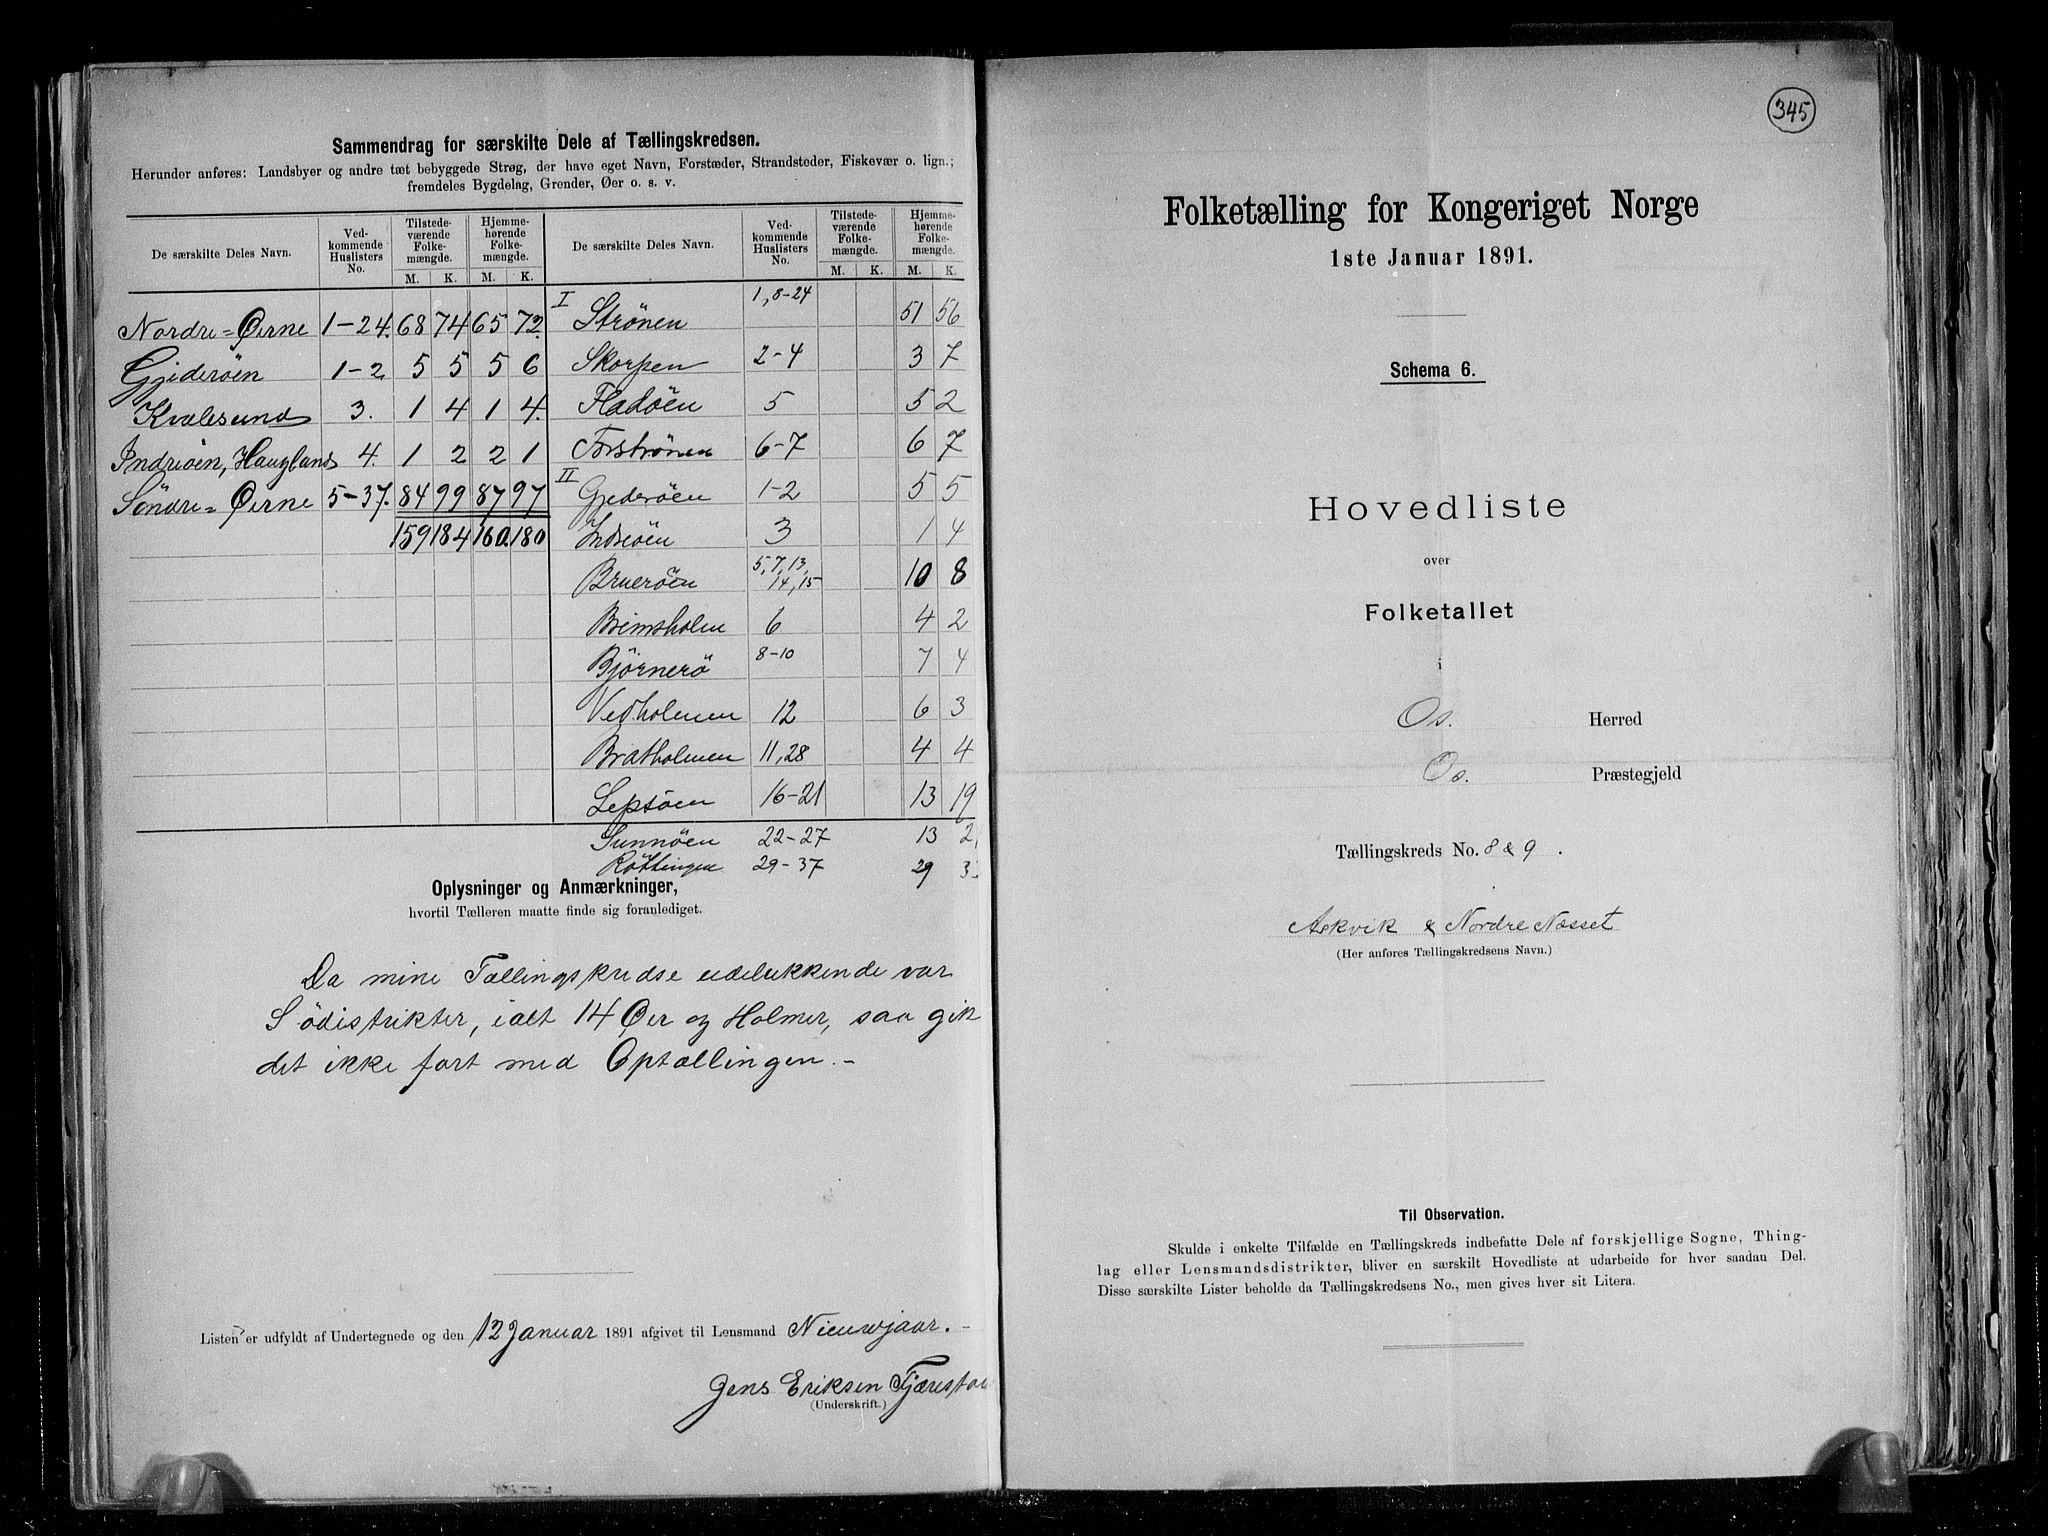 Sammendrag for særskilte Dele af Tællingskredsen.
Herunder anføres: Landsbyer og andre tæt bebyggede Strøg, der have eget Navn, Forstæder, Strandsteder, Fiskevær o. lign.;
fremdeles Bygdelag, Grender, Øer o. s. v.
De særskilte Deles Navn. Vedkommende Huslisters No. Tilstedeværende Folkemængde. M. K. Hjemmehørende Folkemængde. M. K.
Nordre=Øerne 1-24. 68 74 65 72.
Gjederöen 1-2 5 5 5 6
Kvalesund 3. 1 4 1 4.
Indreöen, Hauglands 4. 1 2 2 1
Söndre=Øerne 5-37. 84 99 87 97
159 184 160. 180
De særskilte Deles Navn. Vedkommende Huslisters No. Tilstedeværende Folkemængde. M. K. Hjemmehørende Folkemængde. M. K.
I Strönen 1, 8-24 51 56
Skorpen 2-4 3 7
Fladöen 5 5 2
Forströnen 6-7 6 7
II Gjederöen 1-2 5 5
Indreöen 3 1 4
Brueröen 5, 7, 13, 14, 15 10 8
Beimsholm 6 4 2
Björnerö 8-10 7 4
Vedholmen 12 6 3
Bratholmen 11, 28 4 4
Lepsöen 16-21 13 19
Sunnöen 22-27 13
Röttingen 29-37 29
Oplysninger og Anmærkninger,
hvortil Tælleren maatte finde sig foranlediget.
Da mine Tællingskredse udelukkende var
Södistrikter, ialt 14 Øer og Holmer, saa gik
det ikke fort med Optællingen. -
Listen er udfyldt af Undertegnede og den 12 Januar 1891 afgivet til Lensmand Nieuwjaar. -
Jens Eriksen
(Underskrift.)
345
Folketælling for Kongeriget Norge
1ste Januar 1891.
Schema 6.
Hovedliste
over
Folketallet
i
Os. Herred
Os. Præstegjeld
Tællingskreds No. 8 & 9.
Askvik & Nordre Næsset
(Her anføres Tællingskredsens Navn.)
Til Observation.
Skulde i enkelte Tilfælde en Tællingskreds indbefatte Dele af forskjellige Sogne, Thing-
lag eller Lensmandsdistrikter, bliver en særskilt Hovedliste at udarbeide for hver saadan Del.
Disse særskilte Lister beholde da Tællingskredsens No., men gives hver sit Litera.